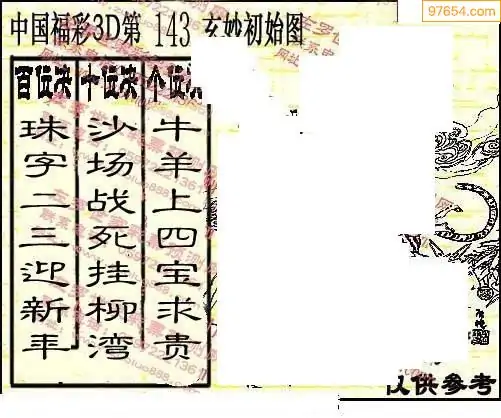 97654.com
中国福彩3D第 143 玄妙初始图
百位决 十位决 个位决
珠字二三迎新年
沙场战死挂柳湾
牛羊上四宝求贵
仅供参考